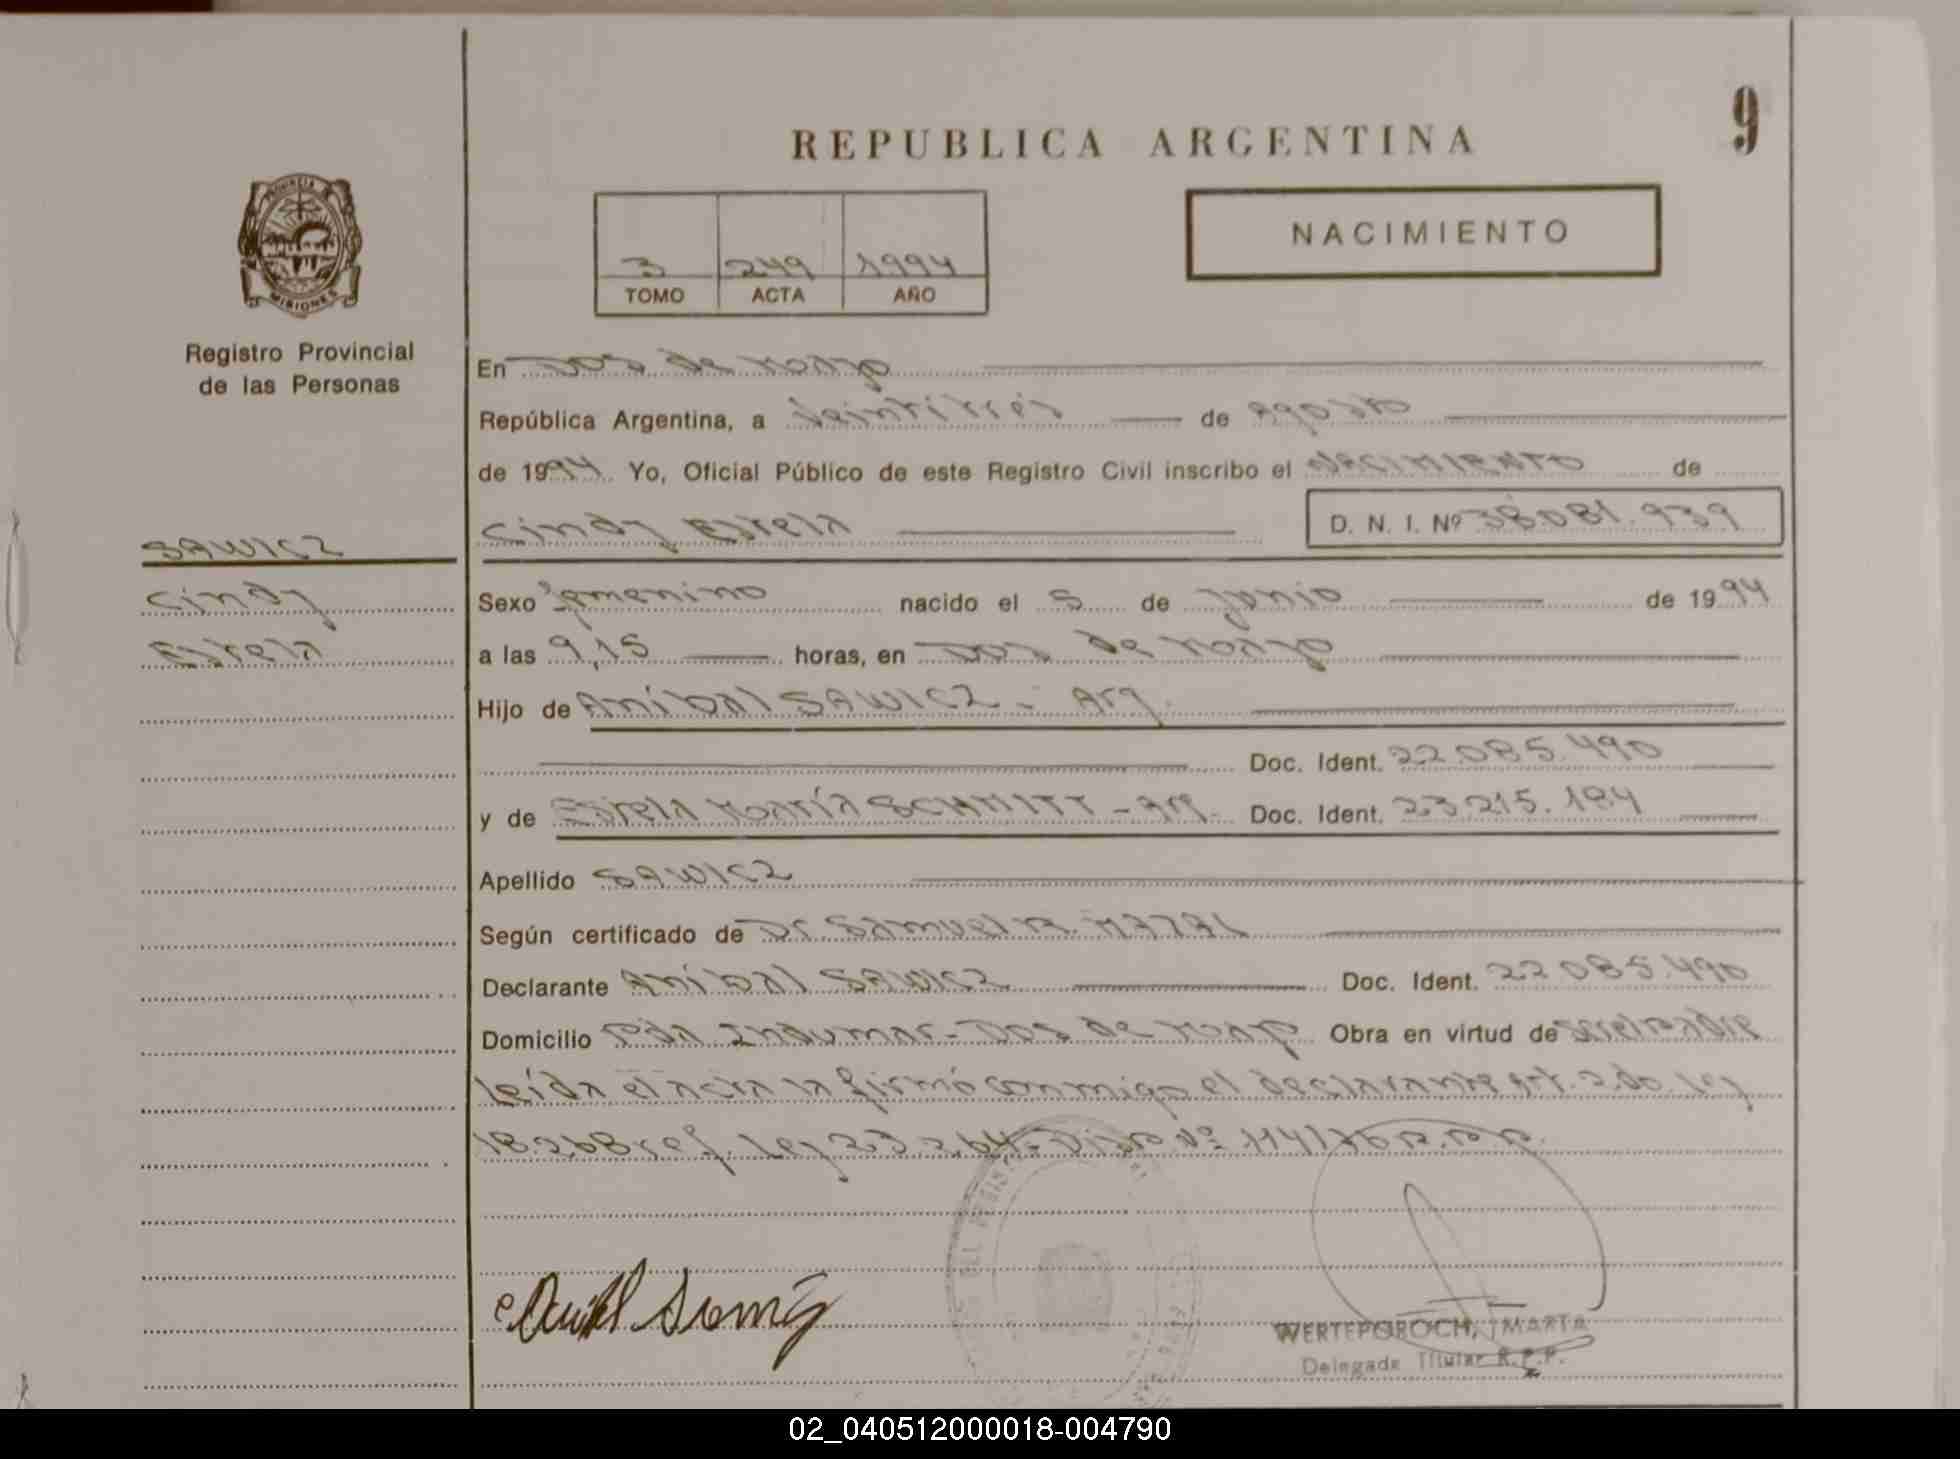 9
REPUBLICA ARGENTINA
PROVINCIA DE
MISIONES
NACIMIENTO
3 249 1994
TOMO ACTA AÑO
Registro Provincial
de las Personas
En Dos de Mayo
República Argentina, a veintitrés de agosto
de 1994 Yo, Oficial Público de este Registro Civil inscribo el NACIMIENTO de
SAWICZ
Cindy Estela
D. N. I. Nº 38.081.939
Cindy
Estela
Sexo femenino nacido el 5 de junio de 1994
a las 9,15 horas, en Dos de Mayo
Hijo de Aníbal SAWICZ - Arg.
Doc. Ident. 22.085.490
y de Estela María SCHMITT - Arg. Doc. Ident. 23.215.184
Apellido SAWICZ
Según certificado de Dr. Samuel R.
Declarante Aníbal SAWICZ Doc. Ident. 22.085.490
Domicilio Pda Indumar - Dos de Mayo Obra en virtud de ser el padre
Leída el acta la firmó conmigo el declarante Art. 2do. Ley
18.268 ref. Ley 23.264 - Disp Nº 1141/76 R.P.P.
WERTEPOROCH, MARTA
Delegada Titular R.P.P.
02_040512000018-004790